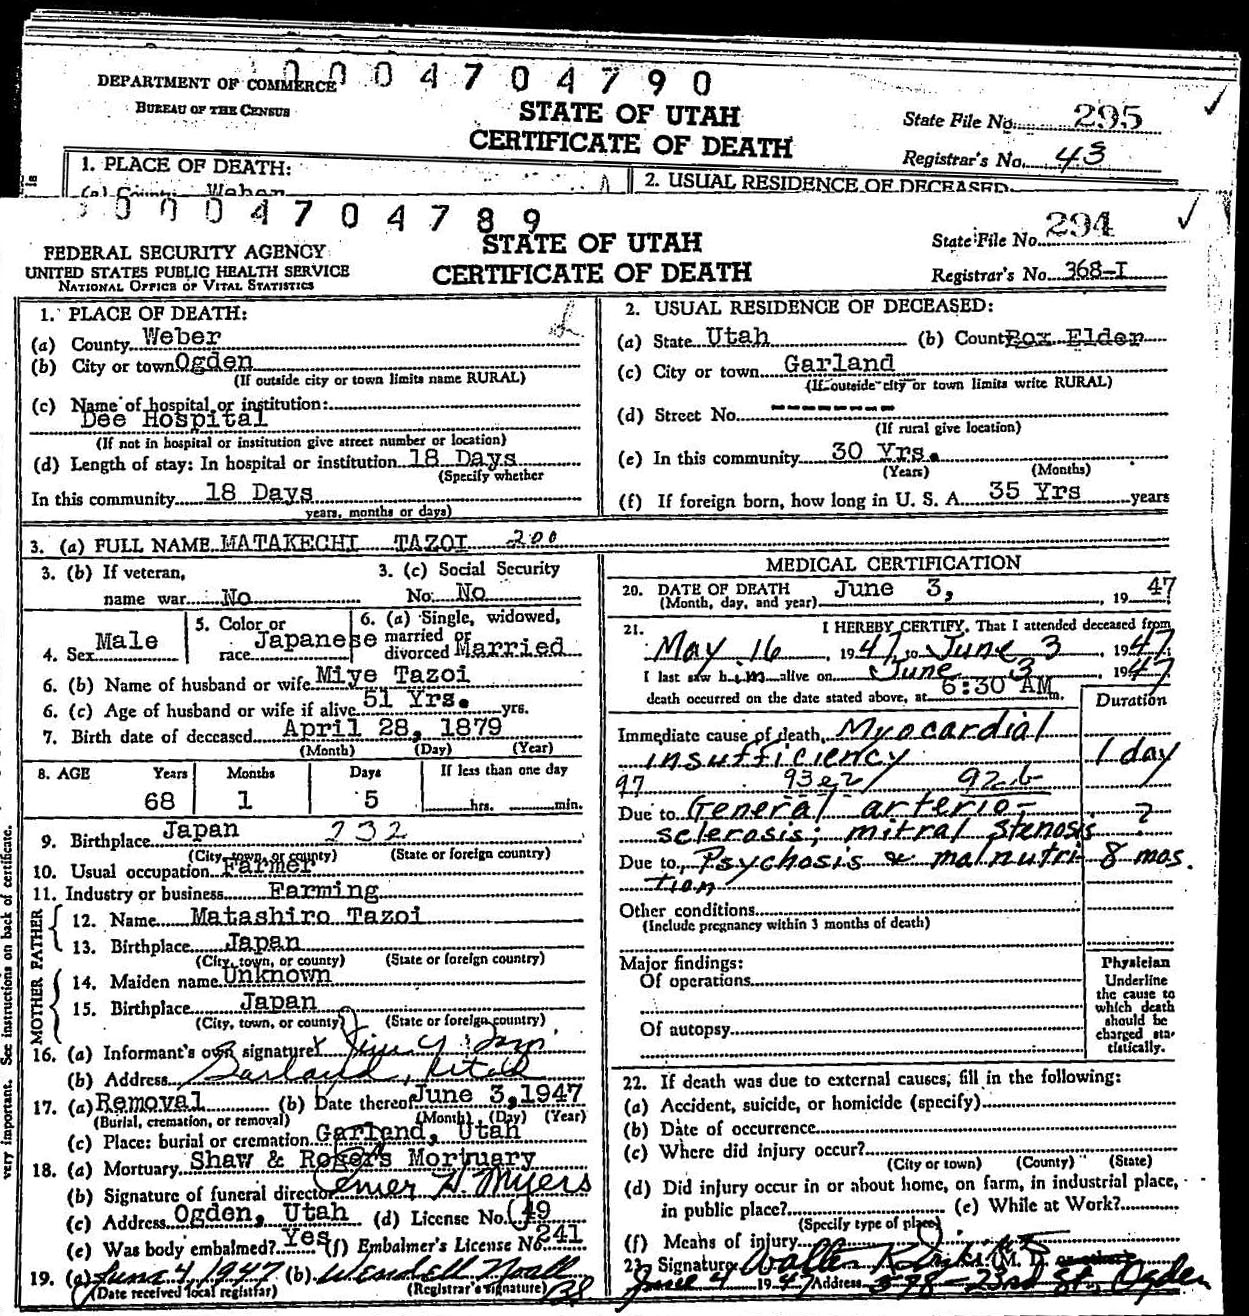 0004704790
DEPARTMENT OF COMMERCE
BUREAU OF THE CENSUS
STATE OF UTAH
CERTIFICATE OF DEATH
State File No. 295
Registrar's No. 43
1. PLACE OF DEATH:
(a) County Weber
2. USUAL RESIDENCE OF DECEASED:
0004704789
FEDERAL SECURITY AGENCY
UNITED STATES PUBLIC HEALTH SERVICE
NATIONAL OFFICE OF VITAL STATISTICS
STATE OF UTAH
CERTIFICATE OF DEATH
State File No. 294
Registrar's No. 368-I
1. PLACE OF DEATH:
(a) County Weber
(b) City or town Ogden
(If outside city or town limits name RURAL)
(c) Name of hospital or institution:
Dee Hospital
(If not in hospital or institution give street number or location)
(d) Length of stay: In hospital or institution 18 Days
(Specify whether
In this community 18 Days
years, months or days)
2. USUAL RESIDENCE OF DECEASED:
(a) State Utah (b) County Box Elder
(c) City or town Garland
(If outside city or town limits write RURAL)
(d) Street No. -------
(If rural give location)
(e) In this community 30 Yrs.
(Years) (Months)
(f) If foreign born, how long in U. S. A. 35 Yrs years
3. (a) FULL NAME MATAKECHI TAZOI 200
3. (b) If veteran, 3. (c) Social Security
name war No No. No
4. Sex Male
5. Color or race Japanese
6. (a) Single, widowed, married or divorced Married
6. (b) Name of husband or wife Miye Tazoi
6. (c) Age of husband or wife if alive 51 Yrs. yrs.
7. Birth date of deceased April 28, 1879
(Month) (Day) (Year)
8. AGE Years Months Days If less than one day
68 1 5 hrs. min.
9. Birthplace Japan 232
(City, town, or county) (State or foreign country)
10. Usual occupation Farmer
11. Industry or business Farming
FATHER
12. Name Matashiro Tazoi
13. Birthplace Japan
(City, town, or county) (State or foreign country)
MOTHER
14. Maiden name Unknown
15. Birthplace Japan
(City, town, or county) (State or foreign country)
16. (a) Informant's own signature X
(b) Address Garland, Utah
17. (a) Removal (b) Date thereof June 3, 1947
(Burial, cremation, or removal) (Month) (Day) (Year)
(c) Place: burial or cremation Garland, Utah
18. (a) Mortuary Shaw & Rogers Mortuary
(b) Signature of funeral director Elmer H. Myers
(c) Address Ogden, Utah (d) License No. 49
(e) Was body embalmed? Yes (f) Embalmer's License No. 241
19. (a) June 4, 1947 (b) Wendell Noall
(Date received local registrar) (Registrar's signature)
MEDICAL CERTIFICATION
20. DATE OF DEATH June 3, 1947
(Month, day, and year)
21. I HEREBY CERTIFY, That I attended deceased from
May 16, 1947 to June 3 1947
I last saw him alive on June 3 1947
death occurred on the date stated above, at 6:30 AM.
Duration
Immediate cause of death Myocardial
insufficiency 1 day
97 93e2 92b
Due to General arterio-
sclerosis; mitral stenosis ?
Due to Psychosis & malnutri- 8 mos.
tion
Other conditions
(Include pregnancy within 3 months of death)
Major findings:
Of operations
Of autopsy
Physician
Underline
the cause to
which death
should be
charged sta-
tistically.
22. If death was due to external causes, fill in the following:
(a) Accident, suicide, or homicide (specify)
(b) Date of occurrence
(c) Where did injury occur?
(City or town) (County) (State)
(d) Did injury occur in or about home, on farm, in industrial place,
in public place? (e) While at Work?
(Specify type of place)
(f) Means of injury
23. Signature Walter (M. D. or other)
June 4 1947 Address 598 - 23rd St., Ogden
very important. See instructions on back of certificate.